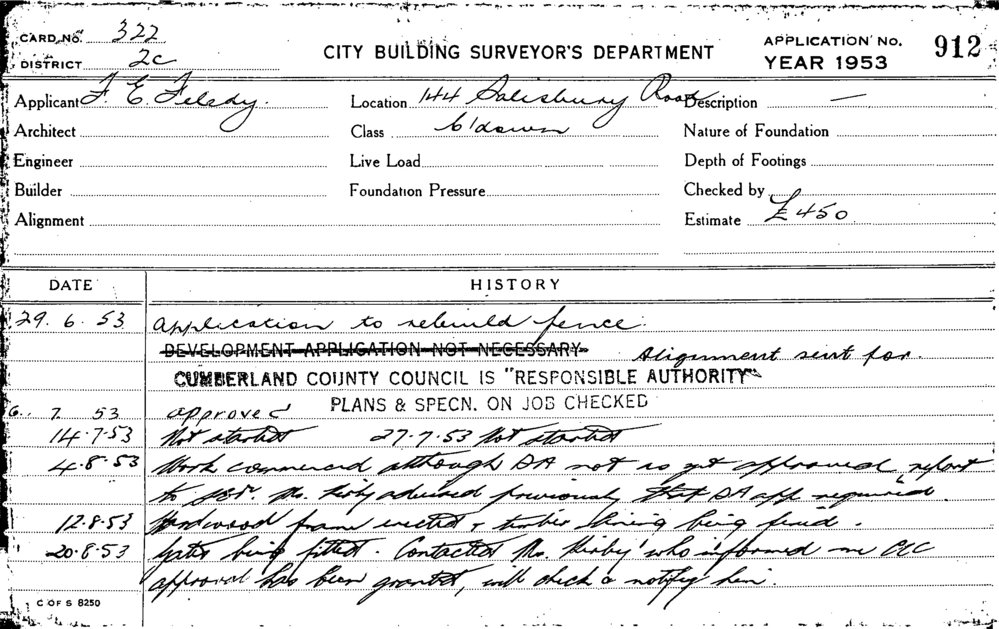 CARD No. 322
DISTRICT 2c
CITY BUILDING SURVEYOR'S DEPARTMENT
APPLICATION No. 912
YEAR 1953
Applicant F. E. Location 144 Salisbury Road Description —
Architect Class C'down Nature of Foundation
Engineer Live Load Depth of Footings
Builder Foundation Pressure Checked by
Alignment Estimate £450
DATE HISTORY
29. 6. 53 Application to rebuild fence.
DEVELOPMENT APPLICATION NOT NECESSARY Alignment sent for.
CUMBERLAND COUNTY COUNCIL IS "RESPONSIBLE AUTHORITY"
6. 7. 53 approved PLANS & SPECN. ON JOB CHECKED
14.7.53 Not started 27.7.53 Not started
4.8.53 Work commenced although DA not as yet approved, report
to Mr. Kirby advised previously that DA app required.
12.8.53 Hardwood frame erected & timber lining being fixed.
20.8.53 Gates being fitted. Contacted Mr. Kirby who informed me CCC
approval has been granted, will check & notify him.
C OF S 8250